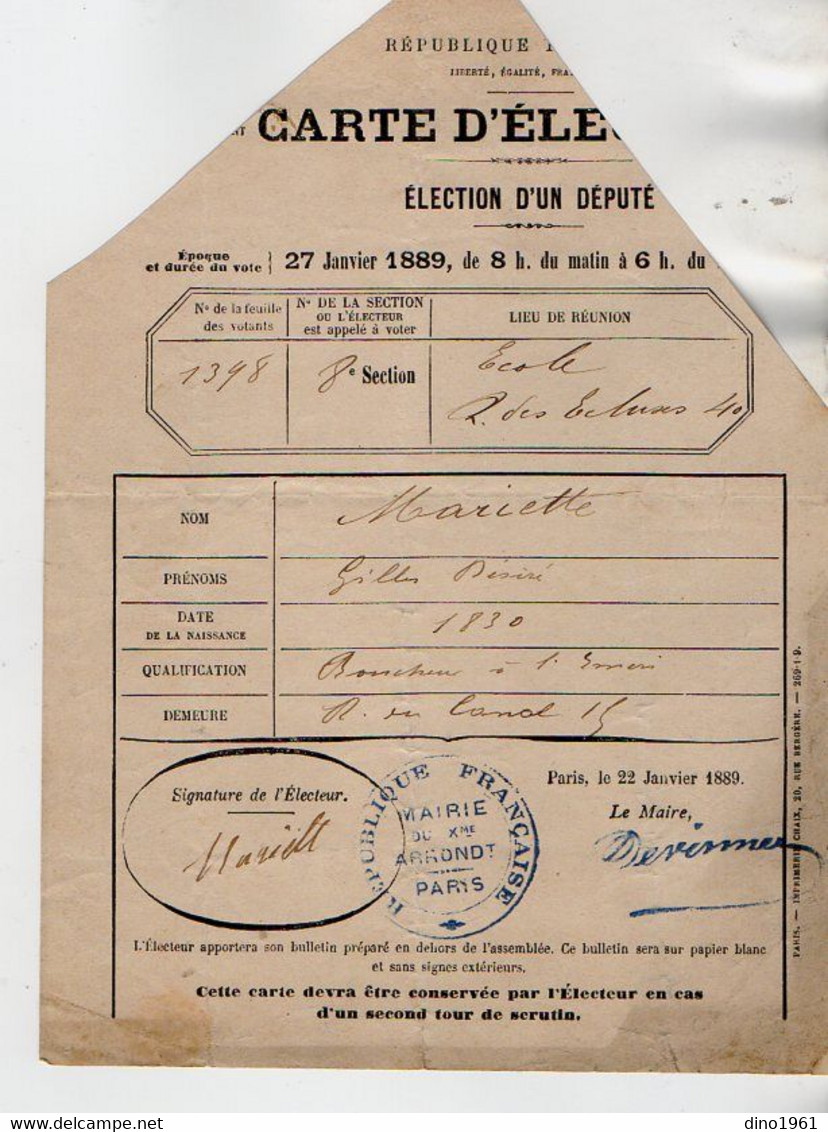 RÉPUBLIQUE
LIBERTÉ, ÉGALITÉ,
CARTE D'ÉLEC
ÉLECTION D'UN DÉPUTÉ
Époque
et durée du vote
27 Janvier 1889, de 8 h. du matin à 6 h. du
No de la feuille
des votants
No DE LA SECTION
OU L'ÉLECTEUR
est appelé à voter
LIEU DE RÉUNION
1398
8e Section
Ecole
R. des Ecluses 40
NOM
Mariette
PRÉNOMS
Gilles Désiré
DATE
DE LA NAISSANCE
1830
QUALIFICATION
à l'Emeri
DEMEURE
R. du Canal 15
Signature de l'Électeur.
Mariette
RÉPUBLIQUE FRANÇAISE
MAIRIE
DU XME
ARRONDT
PARIS
Paris, le 22 Janvier 1889.
Le Maire,
L'Électeur apportera son bulletin préparé en dehors de l'assemblée. Ce bulletin sera sur papier blanc
et sans signes extérieurs.
Cette carte devra être conservée par l'Électeur en cas
d'un second tour de scrutin.
PARIS. — IMPRIMERIE CHAIX, 20, RUE BERGÈRE. — 269-1-9.
delcampe.net
dino1961